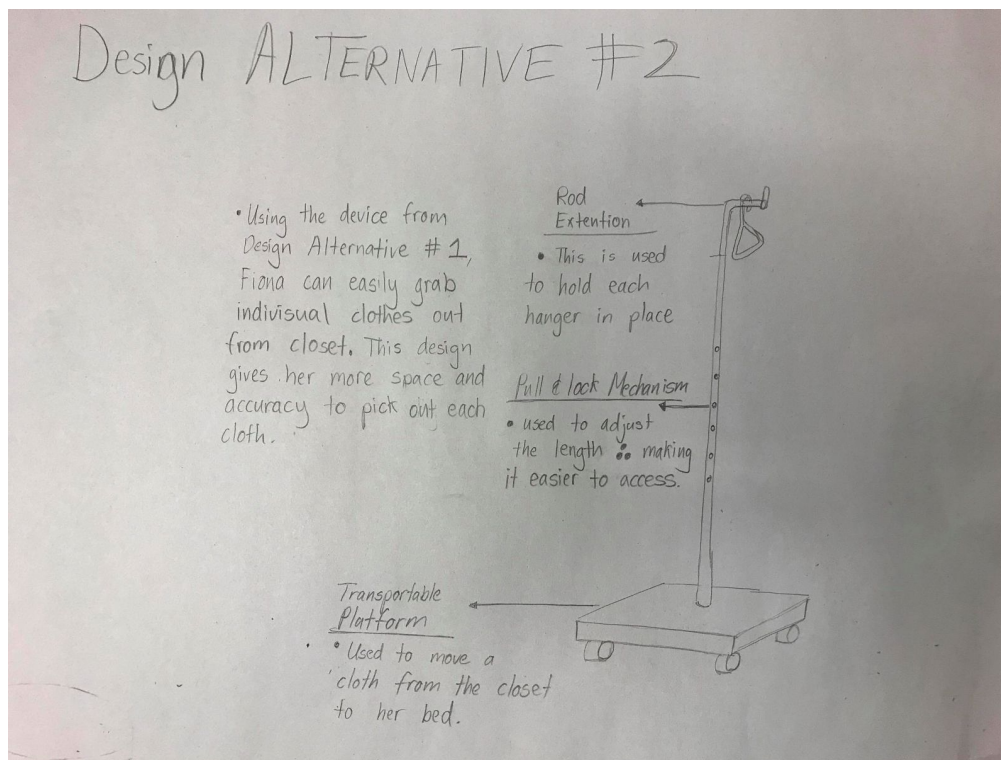 Design ALTERNATIVE #2
• Using the device from
Design Alternative #1,
Fiona can easily grab
indivisual clothes out
from closet. This design
gives her more space and
accuracy to pick out each
cloth.
Rod
Extention
• This is used
to hold each
hanger in place
Pull & lock Mechanism
• used to adjust
the length ∴ making
it easier to access.
Transportable
Platform
• Used to move a
cloth from the closet
to her bed.